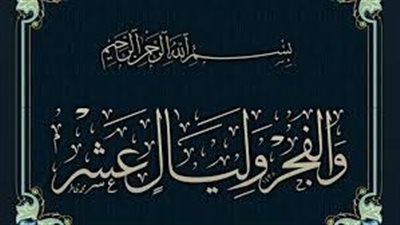 بِسْمِ اللَّهِ الرَّحْمَٰنِ الرَّحِيمِ
وَالْفَجْرِ وَلَيَالٍ عَشْرٍ